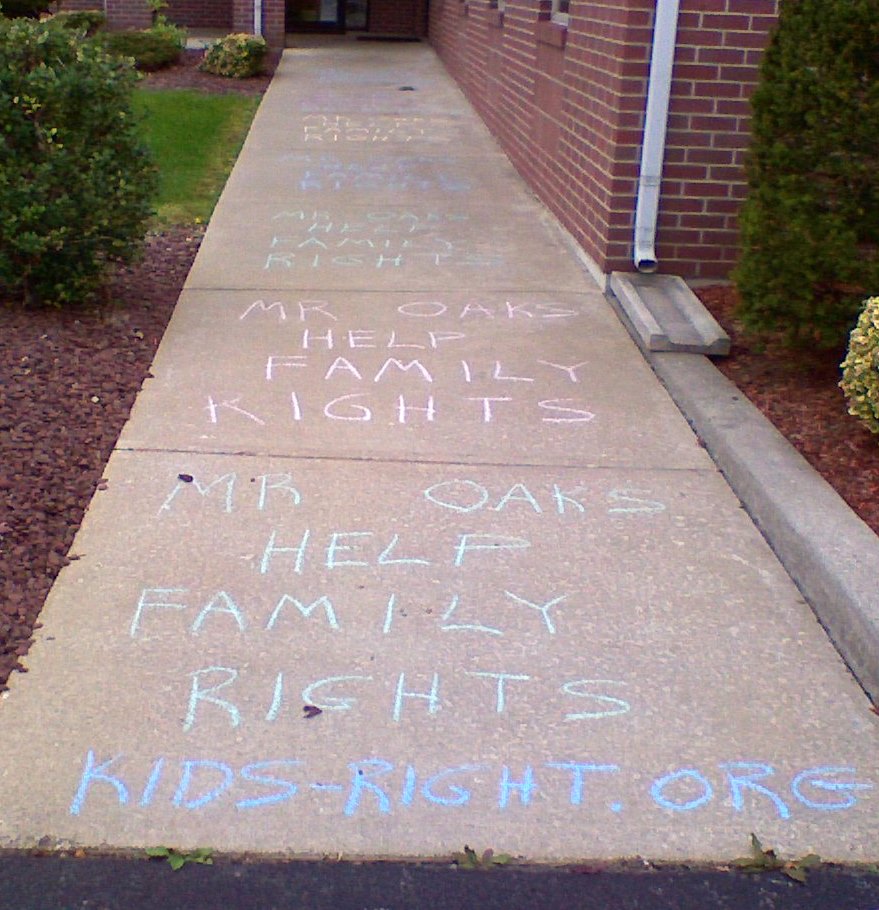 RIGHT
RIGHTS
MR OAKS
HELP
FAMILY
RIGHTS
MR OAKS
HELP
FAMILY
KIGHTS
MR OAKS
HELP
FAMILY
RIGHTS
KIDS-RIGHT.ORG